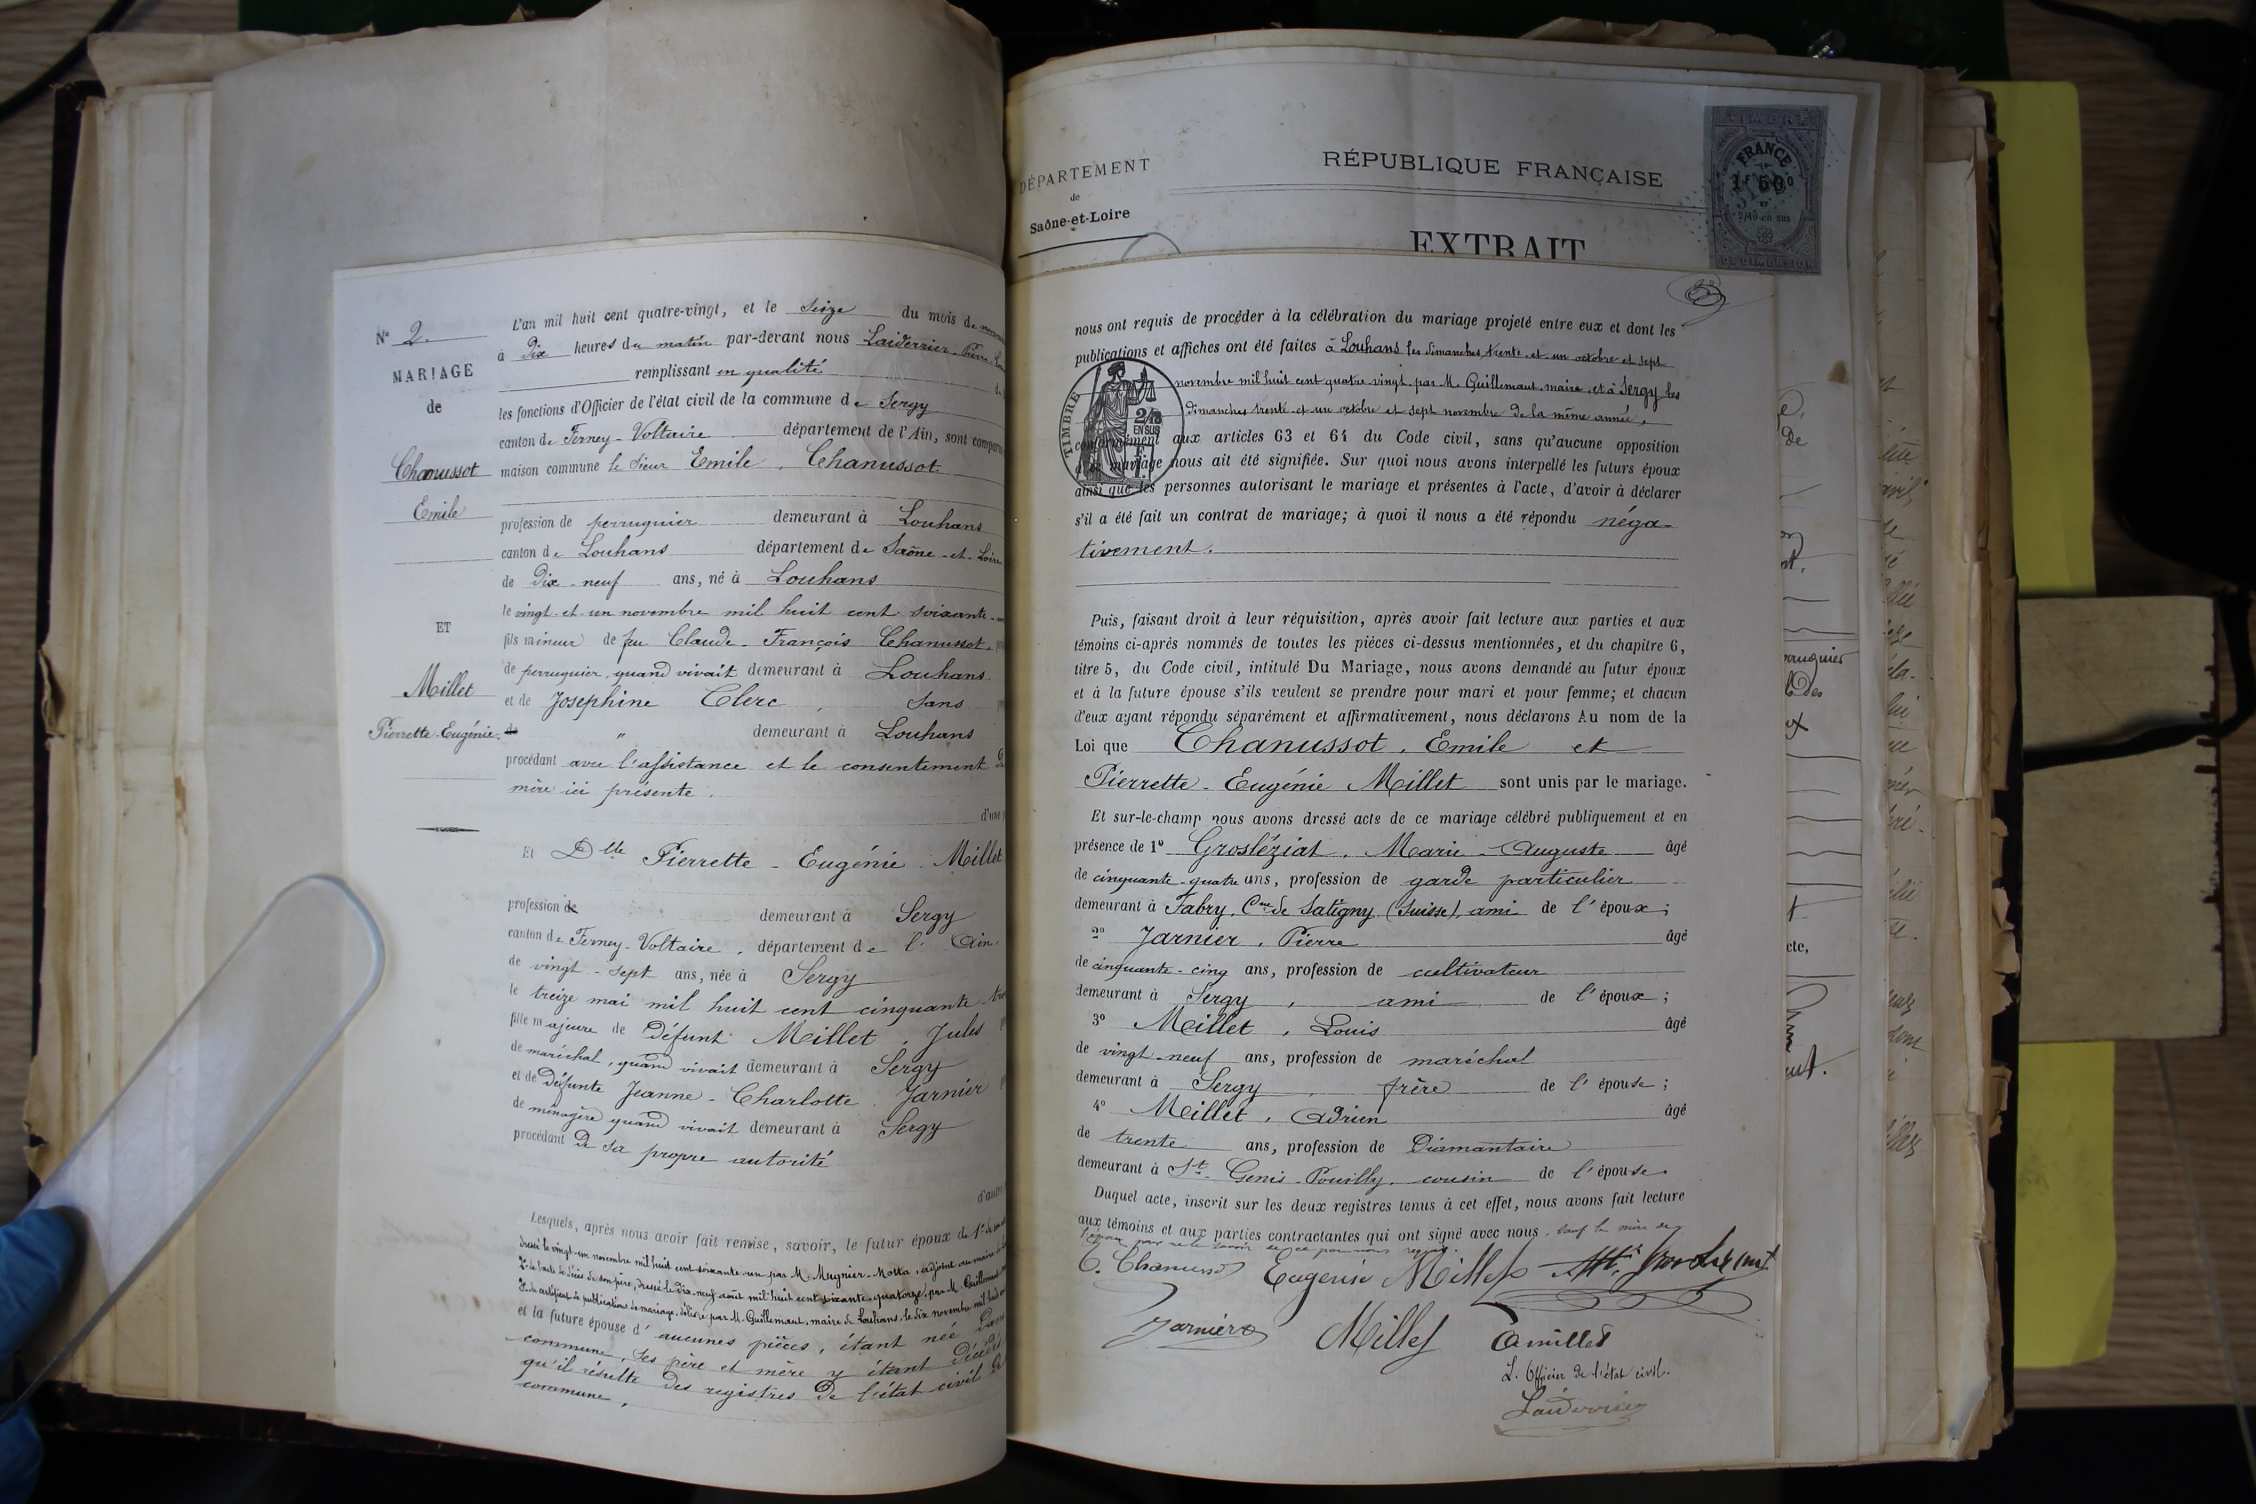 N° 2.
MARIAGE
de
Chanussot
Emile
ET
Millet
Pierrette-Eugénie
L'an mil huit cent quatre-vingt, et le seize du mois de
à dix heures du matin par-devant nous Laiderrier Pierre
remplissant en qualité
les fonctions d'Officier de l'état civil de la commune de Sergy
canton de Ferney-Voltaire département de l'Ain, sont
maison commune le sieur Emile Chanussot
profession de perruquier demeurant à Louhans
canton de Louhans département de Saône-et-Loire
de dix-neuf ans, né à Louhans
le vingt-et-un novembre mil huit cent soixante
fils mineur de feu Claude-François Chanussot
de perruquier, quand vivait demeurant à Louhans
et de Josephine Clerc, sans
de " demeurant à Louhans
procédant avec l'assistance et le consentement
mère ici présente.
d'une
Et Dlle Pierrette-Eugénie Millet
profession de demeurant à Sergy
canton de Ferney-Voltaire, département de l'Ain
de vingt-sept ans, née à Sergy
le treize mai mil huit cent cinquante
fille majeure de défunt Millet, Jules
de maréchal, quand vivait demeurant à Sergy
et de défunte Jeanne-Charlotte Jarnier
de ménagère quand vivait demeurant à Sergy
procédant de sa propre autorité
Lesquels, après nous avoir fait remise, savoir, le futur époux de 1°
dressé le vingt-un novembre mil huit cent soixante-un par M. Mugnier-Motta, adjoint au maire
2° de l'acte de décès de son père, dressé le dix-neuf août mil huit cent soixante-quatorze, par M. Guillemaut
3° du certificat de publications de mariage, délivré par M. Guillemaut, maire de Louhans, le dix novembre mil huit
et la future épouse d'aucunes pièces, étant née
commune, ses père et mère y étant décédés
qu'il résulte des registres de l'état civil
commune.
DÉPARTEMENT
de
Saône-et-Loire
RÉPUBLIQUE FRANÇAISE
EXTRAIT
TIMBRE
FRANCE
2/10 EN SUS
DE DIMENSION
nous ont requis de procéder à la célébration du mariage projeté entre eux et dont les
publications et affiches ont été faites à Louhans les dimanches trente-et-un octobre et sept
novembre mil huit cent quatre vingt par M. Guillemaut, maire, et à Sergy les
dimanches trente-et-un octobre et sept novembre de la même année,
conformément aux articles 63 et 64 du Code civil, sans qu'aucune opposition
à ce mariage nous ait été signifiée. Sur quoi nous avons interpellé les futurs époux
ainsi que les personnes autorisant le mariage et présentes à l'acte, d'avoir à déclarer
s'il a été fait un contrat de mariage; à quoi il nous a été répondu néga-
tivement.
TIMBRE
2/10
EN SUS
Puis, faisant droit à leur réquisition, après avoir fait lecture aux parties et aux
témoins ci-après nommés de toutes les pièces ci-dessus mentionnées, et du chapitre 6,
titre 5, du Code civil, intitulé Du Mariage, nous avons demandé au futur époux
et à la future épouse s'ils veulent se prendre pour mari et pour femme; et chacun
d'eux ayant répondu séparément et affirmativement, nous déclarons Au nom de la
Loi que Chanussot, Emile et
Pierrette-Eugénie Millet sont unis par le mariage.
Et sur-le-champ nous avons dressé acte de ce mariage célébré publiquement et en
présence de 1° Grosléziat, Marie-Auguste âgé
de cinquante-quatre ans, profession de garde particulier
demeurant à Fabry, Cne de Satigny (Suisse), ami de l'époux;
2° Jarnier, Pierre âgé
de cinquante-cinq ans, profession de cultivateur
demeurant à Sergy, ami de l'époux;
3° Millet, Louis âgé
de vingt-neuf ans, profession de maréchal
demeurant à Sergy, frère de l'épouse;
4° Millet, Adrien âgé
de trente ans, profession de Diamantaire
demeurant à St Genis-Pouilly, cousin de l'épouse.
Duquel acte, inscrit sur les deux registres tenus à cet effet, nous avons fait lecture
aux témoins et aux parties contractantes qui ont signé avec nous. sauf la mère de
l'époux pour ne le savoir de ce par nous requis.
E. Chanussot Eugenie Millet
Jarnier Millet Amillet
L'Officier de l'état civil.
Laiderrier